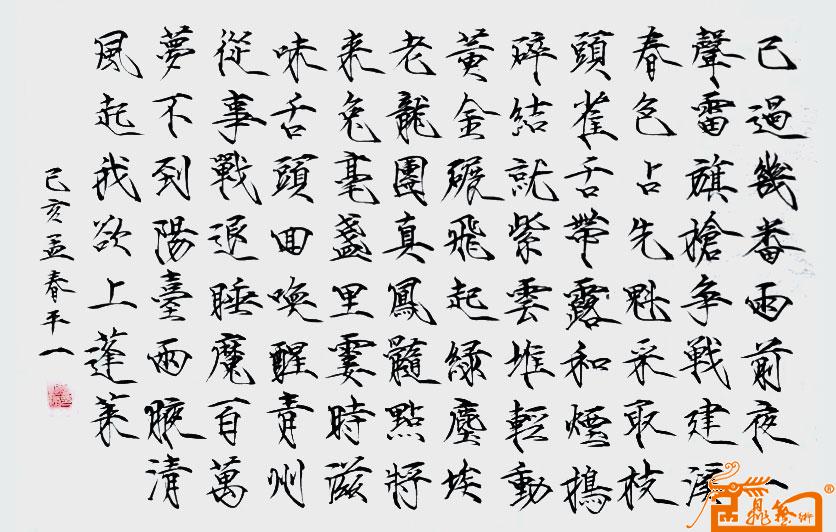 已過幾番雨前夜一
聲雷旗槍爭戰建溪
春色占先魁采取枝
頭雀舌帶露和煙搗
碎結就紫雲堆輕動
黄金碾飛起綠塵埃
老龍團真鳳髓點將
来兔毫盞里霎時滋
味舌頭囬喚醒青州
從事戰退睡魔百萬
夢不到陽臺兩腋清
風起我欲上蓬萊
己亥孟春平一